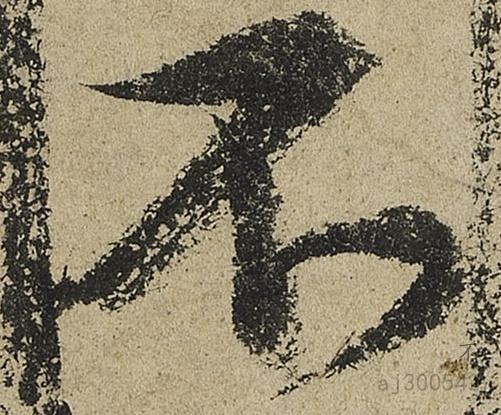 不
不
aj30054